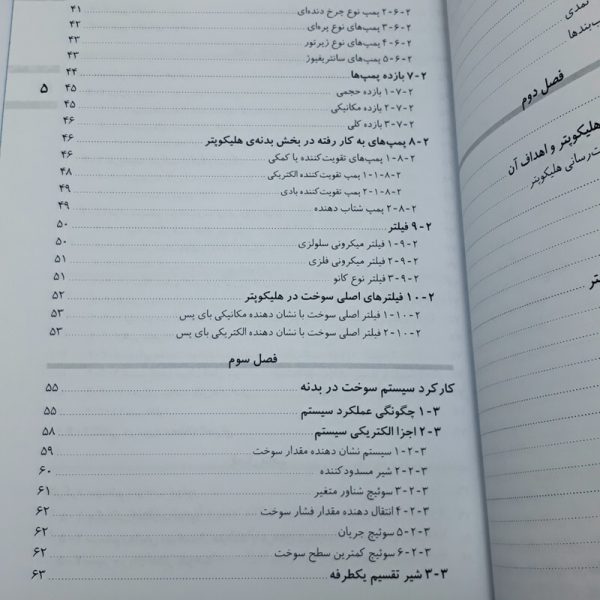 نمدی
فصل دوم
هلیکوپتر و اهداف آن
ت‌رسانی هلیکوپتر
۲-۶-۲ پمپ نوع چرخ دنده‌ای ۴۱
۳-۶-۲ پمپ‌های نوع پره‌ای ۴۲
۴-۶-۲ پمپ‌های نوع ژیرتور ۴۳
۵-۶-۲ پمپ‌های سانتریفیوژ ۴۳
۷-۲ بازده پمپ‌ها ۴۴
۱-۷-۲ بازده حجمی ۴۵
۵
۲-۷-۲ بازده مکانیکی ۴۵
۳-۷-۲ بازده کلی ۴۶
۸-۲ پمپ‌های به کار رفته در بخش بدنه‌ی هلیکوپتر ۴۶
۱-۸-۲ پمپ‌های تقویت‌کننده یا کمکی ۴۶
۱-۱-۸-۲ پمپ تقویت‌کننده الکتریکی ۴۸
۲-۱-۸-۲ پمپ تقویت‌کننده بادی ۴۹
۲-۸-۲ پمپ شتاب دهنده ۴۹
۹-۲ فیلتر ۵۰
۱-۹-۲ فیلتر میکرونی سلولزی ۵۰
۲-۹-۲ فیلتر میکرونی فلزی ۵۱
۳-۹-۲ فیلتر نوع کانو ۵۱
۱۰-۲ فیلترهای اصلی سوخت در هلیکوپتر ۵۲
۱-۱۰-۲ فیلتر اصلی سوخت با نشان دهنده مکانیکی بای پس ۵۳
۲-۱۰-۲ فیلتر اصلی سوخت با نشان دهنده الکتریکی بای پس ۵۳
فصل سوم
کارکرد سیستم سوخت در بدنه ۵۵
۱-۳ چگونگی عملکرد سیستم ۵۵
۲-۳ اجزا الکتریکی سیستم ۵۸
۱-۲-۳ سیستم نشان دهنده مقدار سوخت ۵۹
۲-۲-۳ شیر مسدود کننده ۶۰
۳-۲-۳ سوئیچ شناور متغیر ۶۱
۴-۲-۳ انتقال دهنده مقدار فشار سوخت ۶۲
۵-۲-۳ سوئیچ جریان ۶۲
۶-۲-۳ سوئیچ کمترین سطح سوخت ۶۲
۳-۳ شیر تقسیم یکطرفه ۶۳